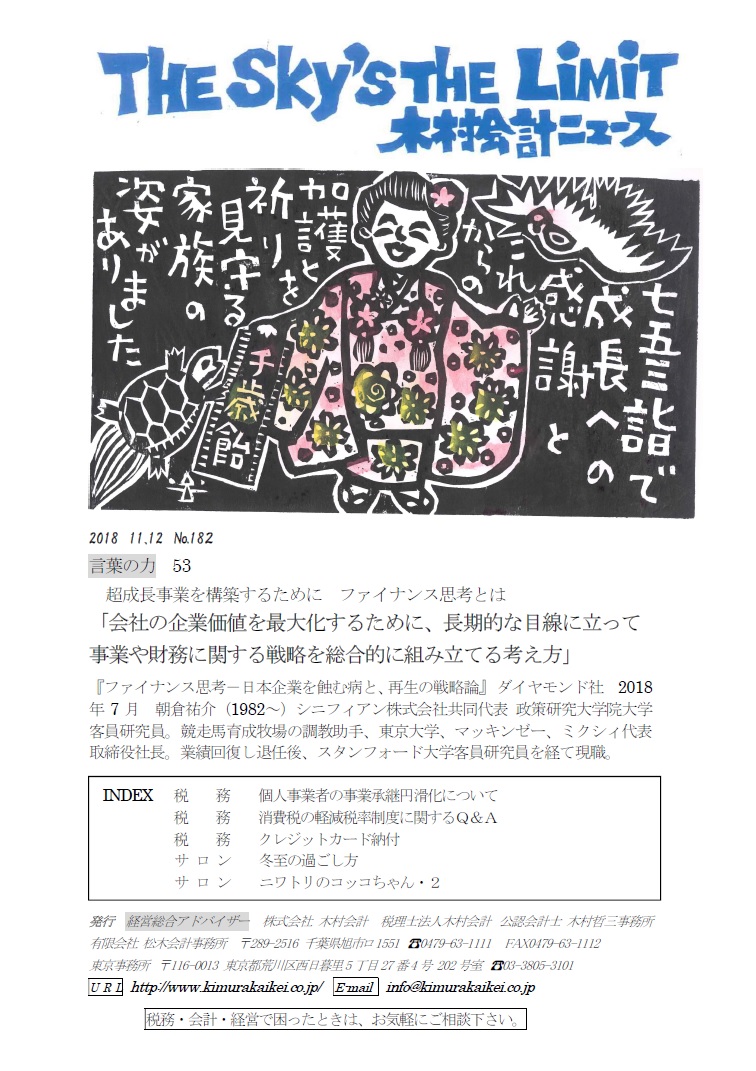 THE SKY'S THE LIMIT
木村会計ニュース
七五三詣で
成長への
感謝と
これ
からの
加護と
祈りを
見守る
家族の
姿が
ありました
千歳飴
2018 11,12 No.182
言葉の力 53
超成長事業を構築するために ファイナンス思考とは
「会社の企業価値を最大化するために、長期的な目線に立って
事業や財務に関する戦略を総合的に組み立てる考え方」
『ファイナンス思考－日本企業を蝕む病と、再生の戦略論』ダイヤモンド社 2018
年 7 月 朝倉祐介（1982～）シニフィアン株式会社共同代表 政策研究大学院大学
客員研究員。競走馬育成牧場の調教助手、東京大学、マッキンゼー、ミクシィ代表
取締役社長。業績回復し退任後、スタンフォード大学客員研究員を経て現職。
INDEX 税 務 個人事業者の事業承継円滑化について
税 務 消費税の軽減税率制度に関するQ＆A
税 務 クレジットカード納付
サ ロ ン 冬至の過ごし方
サ ロ ン ニワトリのコッコちゃん・２
発行 経営総合アドバイザー 株式会社 木村会計 税理士法人木村会計 公認会計士 木村哲三事務所
有限会社 松木会計事務所 〒289-2516 千葉県旭市ロ1551 ☎0479-63-1111 FAX0479-63-1112
東京事務所 〒116-0013 東京都荒川区西日暮里5丁目27番4号 202号室 ☎03-3805-3101
URL http://www.kimurakaikei.co.jp/ E-mail info@kimurakaikei.co.jp
税務・会計・経営で困ったときは、お気軽にご相談下さい。